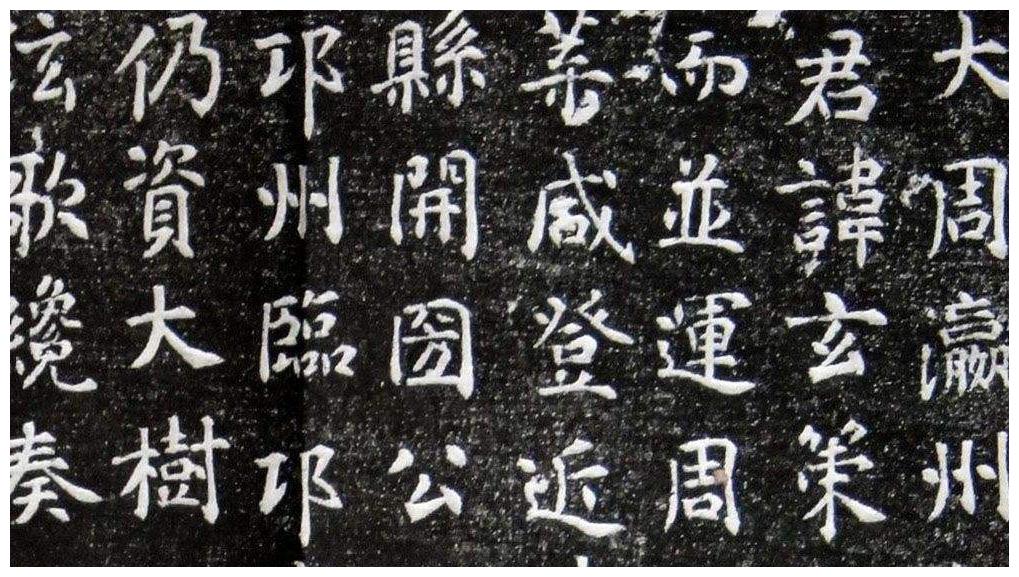 大周瀛州
君諱玄策
而並運周
咸登近
縣開圀公
邛州臨邛
仍資大樹
歌纔奏